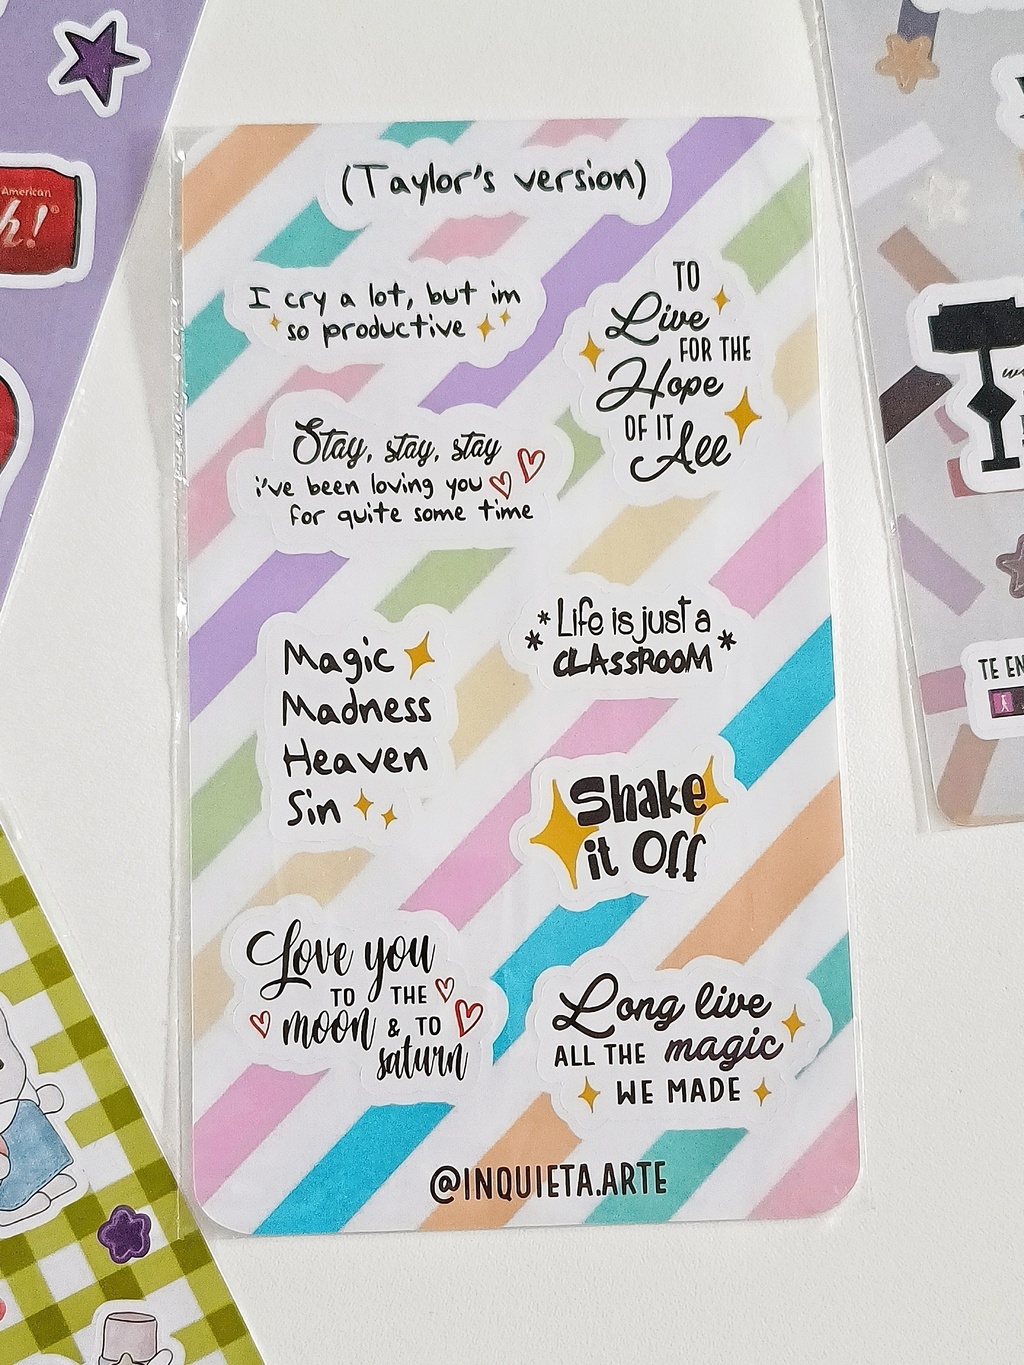 (Taylor's version)
I cry a lot, but im
so productive
TO
Live
FOR THE
Hope
OF IT
All
Stay, stay, stay
i've been loving you
for quite some time
Magic
Madness
Heaven
Sin
Life is just a
CLASSROOM
Shake
it Off
Love you
TO THE
moon & TO
saturn
Long live
ALL THE magic
WE MADE
@INQUIETA.ARTE
American
h!
TE EN